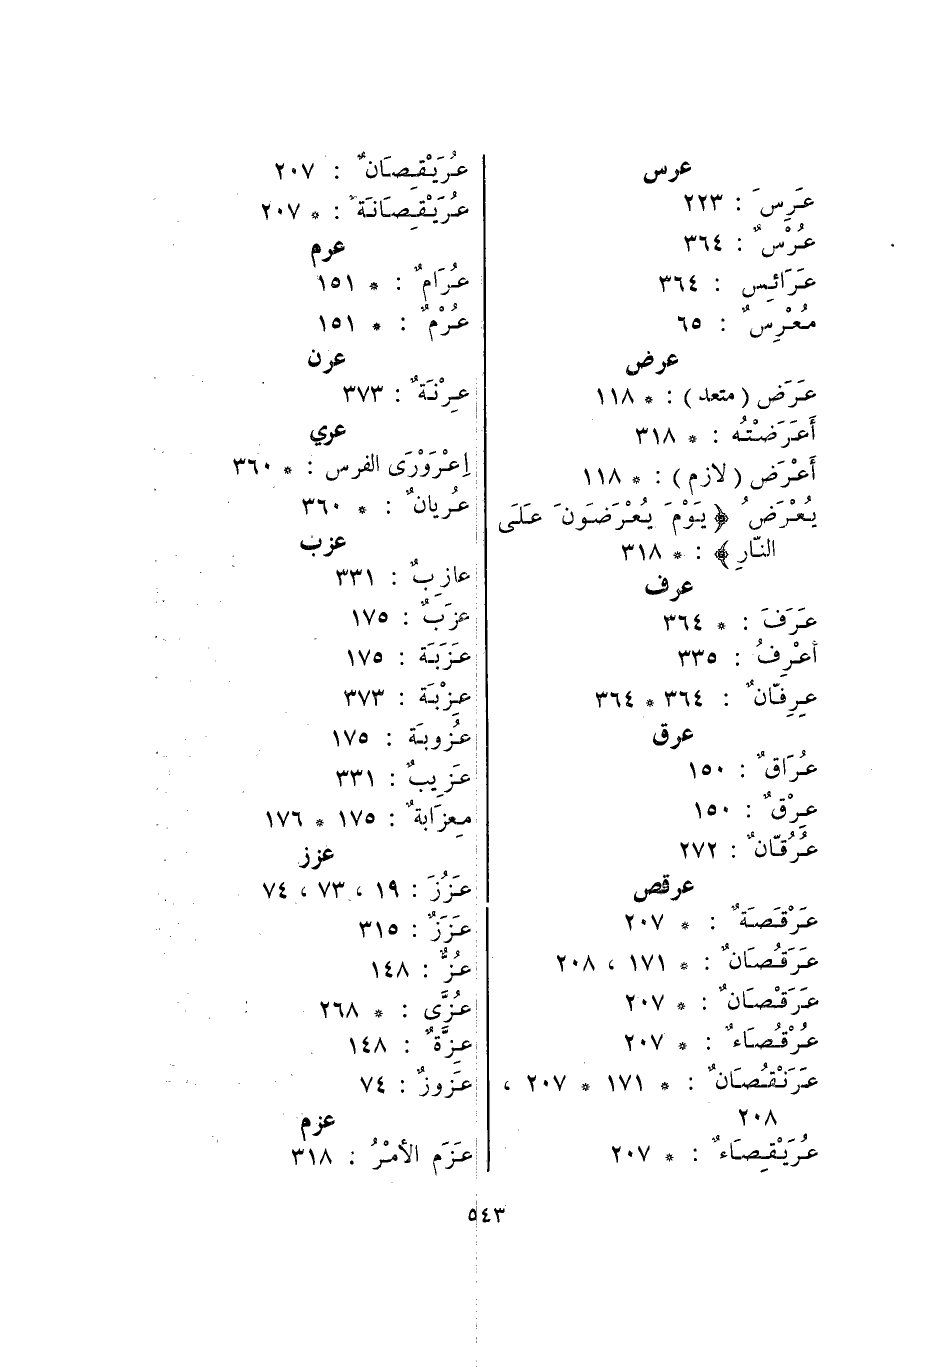 عرس
عَرِسَ : ٢٢٣
عُرْسٌ : ٣٦٤
عَرَائِس : ٣٦٤
مُعْرِسٌ : ٦٥
عرض
عَرَض (متعد) : * ١١٨
أَعَرَضْتُه : * ٣١٨
أَعْرَض (لازم) : * ١١٨
يُعْرَضُ ﴿يَوْمَ يُعْرَضَونَ عَلَى
النّارِ﴾ : * ٣١٨
عرف
عَرَفَ : * ٣٦٤
أعْرِفُ : ٣٣٥
عِرِفّانٌ : ٣٦٤ * ٣٦٤
عرق
عُرَاقٌ : ١٥٠
عِرْقٌ : ١٥٠
عُرُقّانٌ : ٢٧٢
عرقص
عَرْقَصَةٌ : * ٢٠٧
عَرَقُصَانٌ : * ١٧١ ، ٢٠٨
عَرَقْصَانٌ : * ٢٠٧
عُرْقُصَاءٌ : * ٢٠٧
عَرَنْقُصَانٌ : * ١٧١ * ٢٠٧ ،
٢٠٨
عُرَيْقِصَاءٌ : * ٢٠٧
عُرَيْقِصَانٌ : ٢٠٧
عُرَيْقِصَانَةٌ : * ٢٠٧
عرم
عُرَامٌ : * ١٥١
عُرْمٌ : * ١٥١
عرن
عِرْنَةٌ : ٣٧٣
عري
اِعْرَوْرَى الفرس : * ٣٦٠
عُريانٌ : * ٣٦٠
عزب
عازِبٌ : ٣٣١
عزَبٌ : ١٧٥
عَزَبَة : ١٧٥
عِزْبَة : ٣٧٣
عُزُوبَة : ١٧٥
عَزِيبٌ : ٣٣١
مِعزَابةٌ : ١٧٥ * ١٧٦
عزز
عَزُزَ : ١٩ ، ٧٣ ، ٧٤
عَزَزٌ : ٣١٥
عُزٌّ : ١٤٨
عُزَّى : * ٢٦٨
عِزَّةٌ : ١٤٨
عَزوزٌ : ٧٤
عزم
عَزَم الأمْرُ : ٣١٨
٥٤٣